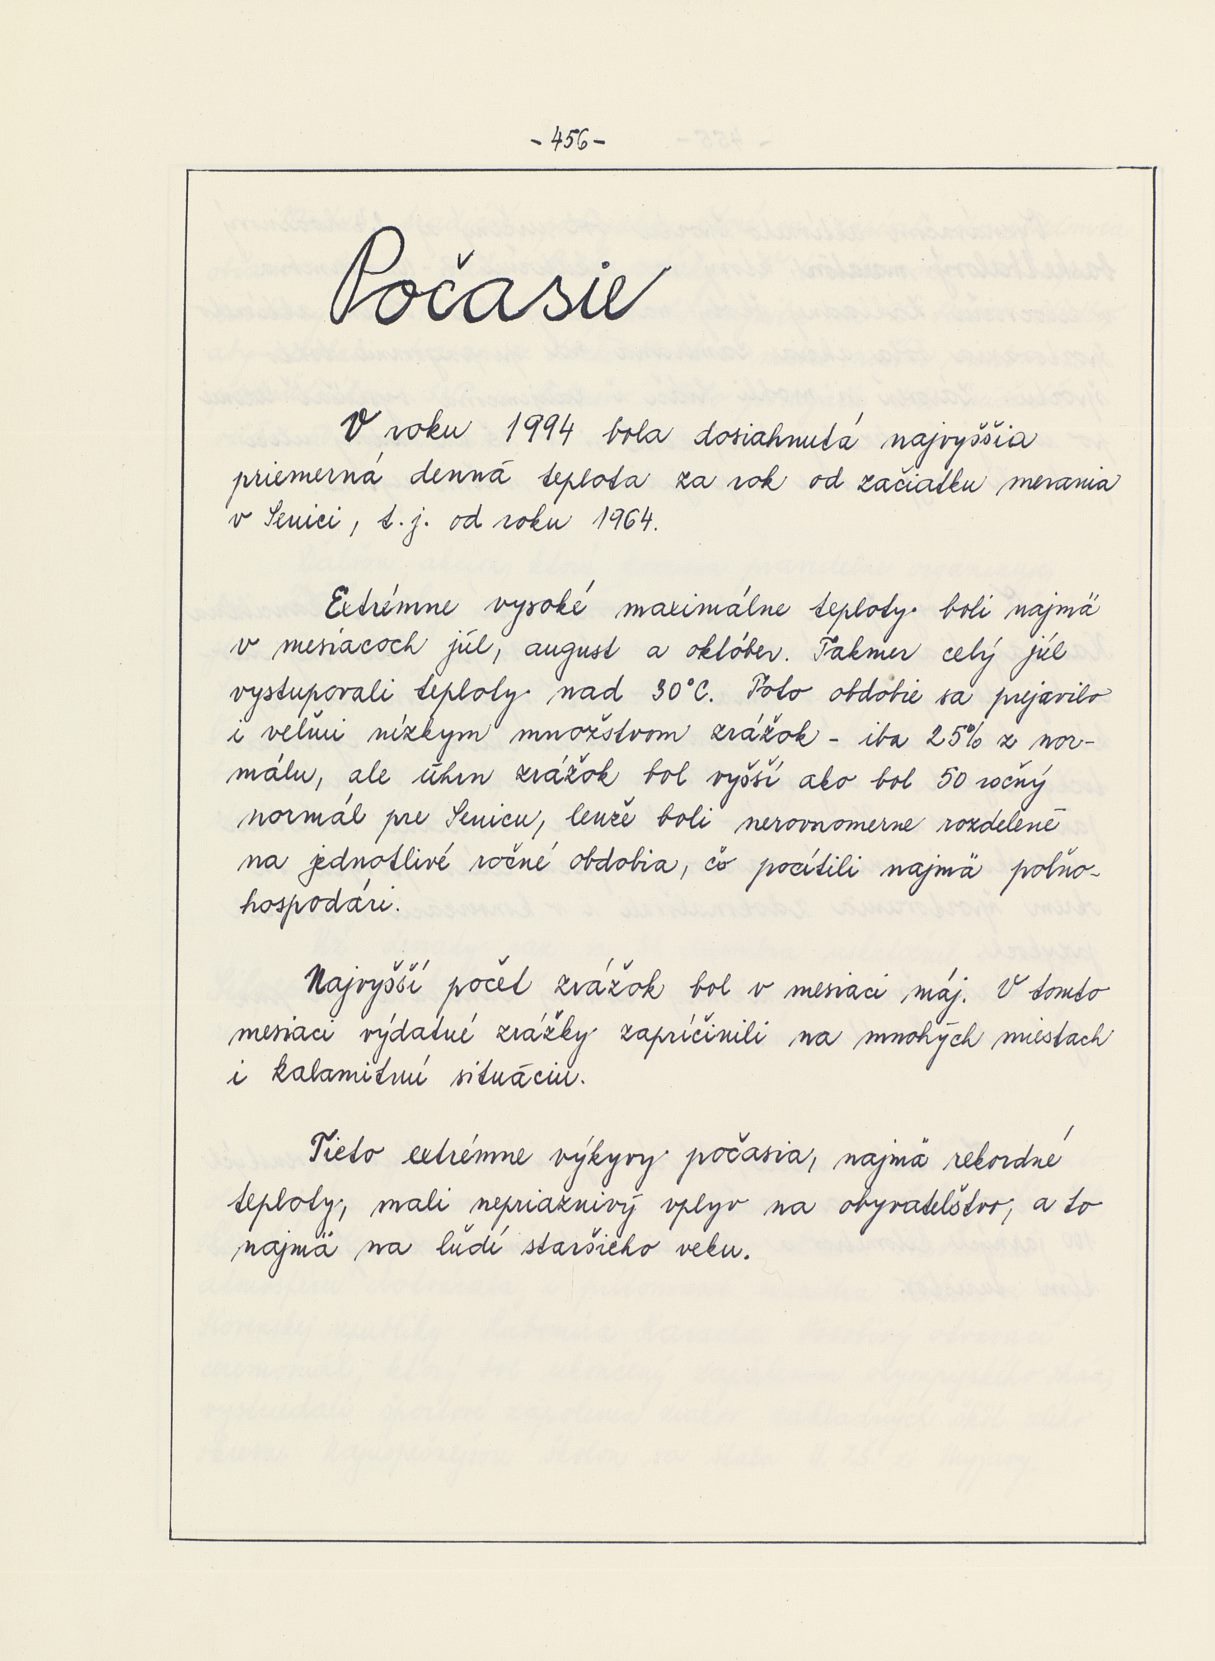 - 456 -
Počasie
V roku 1994 bola dosiahnutá najvyššia
priemerná denná teplota za rok od začiatku merania
v Senici, t.j. od roku 1964.
Extrémne vysoké maximálne teploty boli najmä
v mesiacoch júl, august a október. Takmer celý júl
vystupovali teploty nad 30°C. Toto obdobie sa prejavilo
i veľmi nízkym množstvom zrážok - iba 25% z nor-
málu, ale úhrn zrážok bol vyšší ako bol 50 ročný
normál pre Senicu, lenže boli nerovnomerne rozdelené
na jednotlivé ročné obdobia, čo pocítili najmä poľno-
hospodári.
Najvyšší počet zrážok bol v mesiaci máj. V tomto
mesiaci výdatné zrážky zapríčinili na mnohých miestach
i kalamitnú situáciu.
Tieto extrémne výkyvy počasia, najmä rekordné
teploty, mali nepriaznivý vplyv na obyvateľstvo, a to
najmä na ľudí staršieho veku.